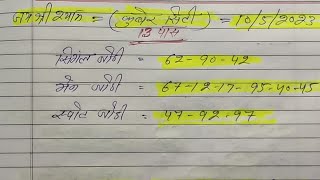 जय श्री श्याम = (कुबेर सिटी) = 10/5/2023
13 पास
सिंगल जोडी = 62-90-42
मेन जोडी = 67-12-17-95-40-45
स्पोट जोडी = 47-92-97